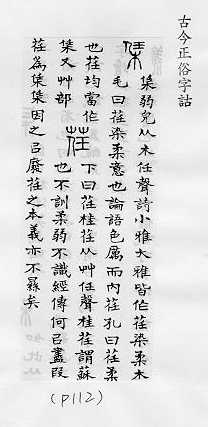 古今正俗字詁
栠
栠弱皃从木任聲詩小雅大雅皆作荏染柔木
毛曰荏染柔意也論語色厲而內荏孔曰荏柔
也荏均當作
栠又艸部
荏
下曰荏桂荏从艸任聲桂荏謂蘇
也不訓柔弱不識經傳何㠯盡叚
荏為栠栠因之㠯廢荏之本義亦不㬎矣
(P112)